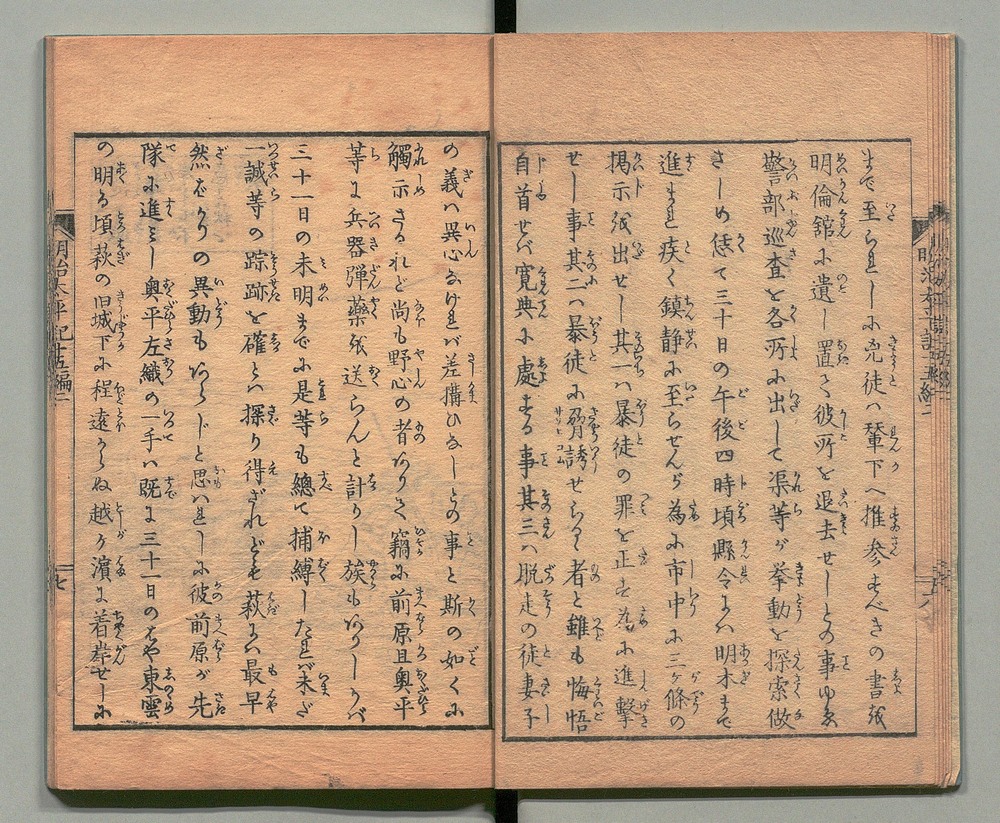 まで至られしに兇徒ハ輦下へ推参すべきの書を
明倫館に遺し置き彼所を退去せしとの事ゆゑ
警部巡査を各所に出して渠等が挙動を探索做
さしめ恁て三十日の午後四時頃縣令にハ明木まで
進まれ疾く鎮静に至らせんが為に市中に三ヶ條の
掲示を出せし其一ハ暴徒の罪を正す為に進撃
せし事其二ハ暴徒に脅誘せらるゝ者と雖も悔悟
自首せバ寛典に處する事其三ハ脱走の徒妻子
の義ハ異心なけれバ差構ひなしとの事と斯の如くに
觸示さるれど尚も野心の者ありて竊に前原且奥平
等に兵器彈藥を送らんと計りし族もありしかバ
三十一日の未明までに是等も總て捕縛したれバ未だ
一誠等の踪跡を確とハ探り得ざれども萩にハ最早
然ばかりの異動もあらじと思ハれしに彼前原が先
隊に進みし奥平左織の一手ハ既に三十一日のはや東雲
の明る頃萩の旧城下に程遠からぬ越ヶ濱に着岸せしに
明治太平記十五編二
七